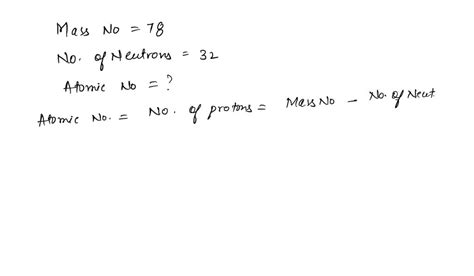 Mass No = 78
No. of Neutrons = 32
Atomic No = ?
Atomic No. = No. of protons = Mass No - No. of Neut